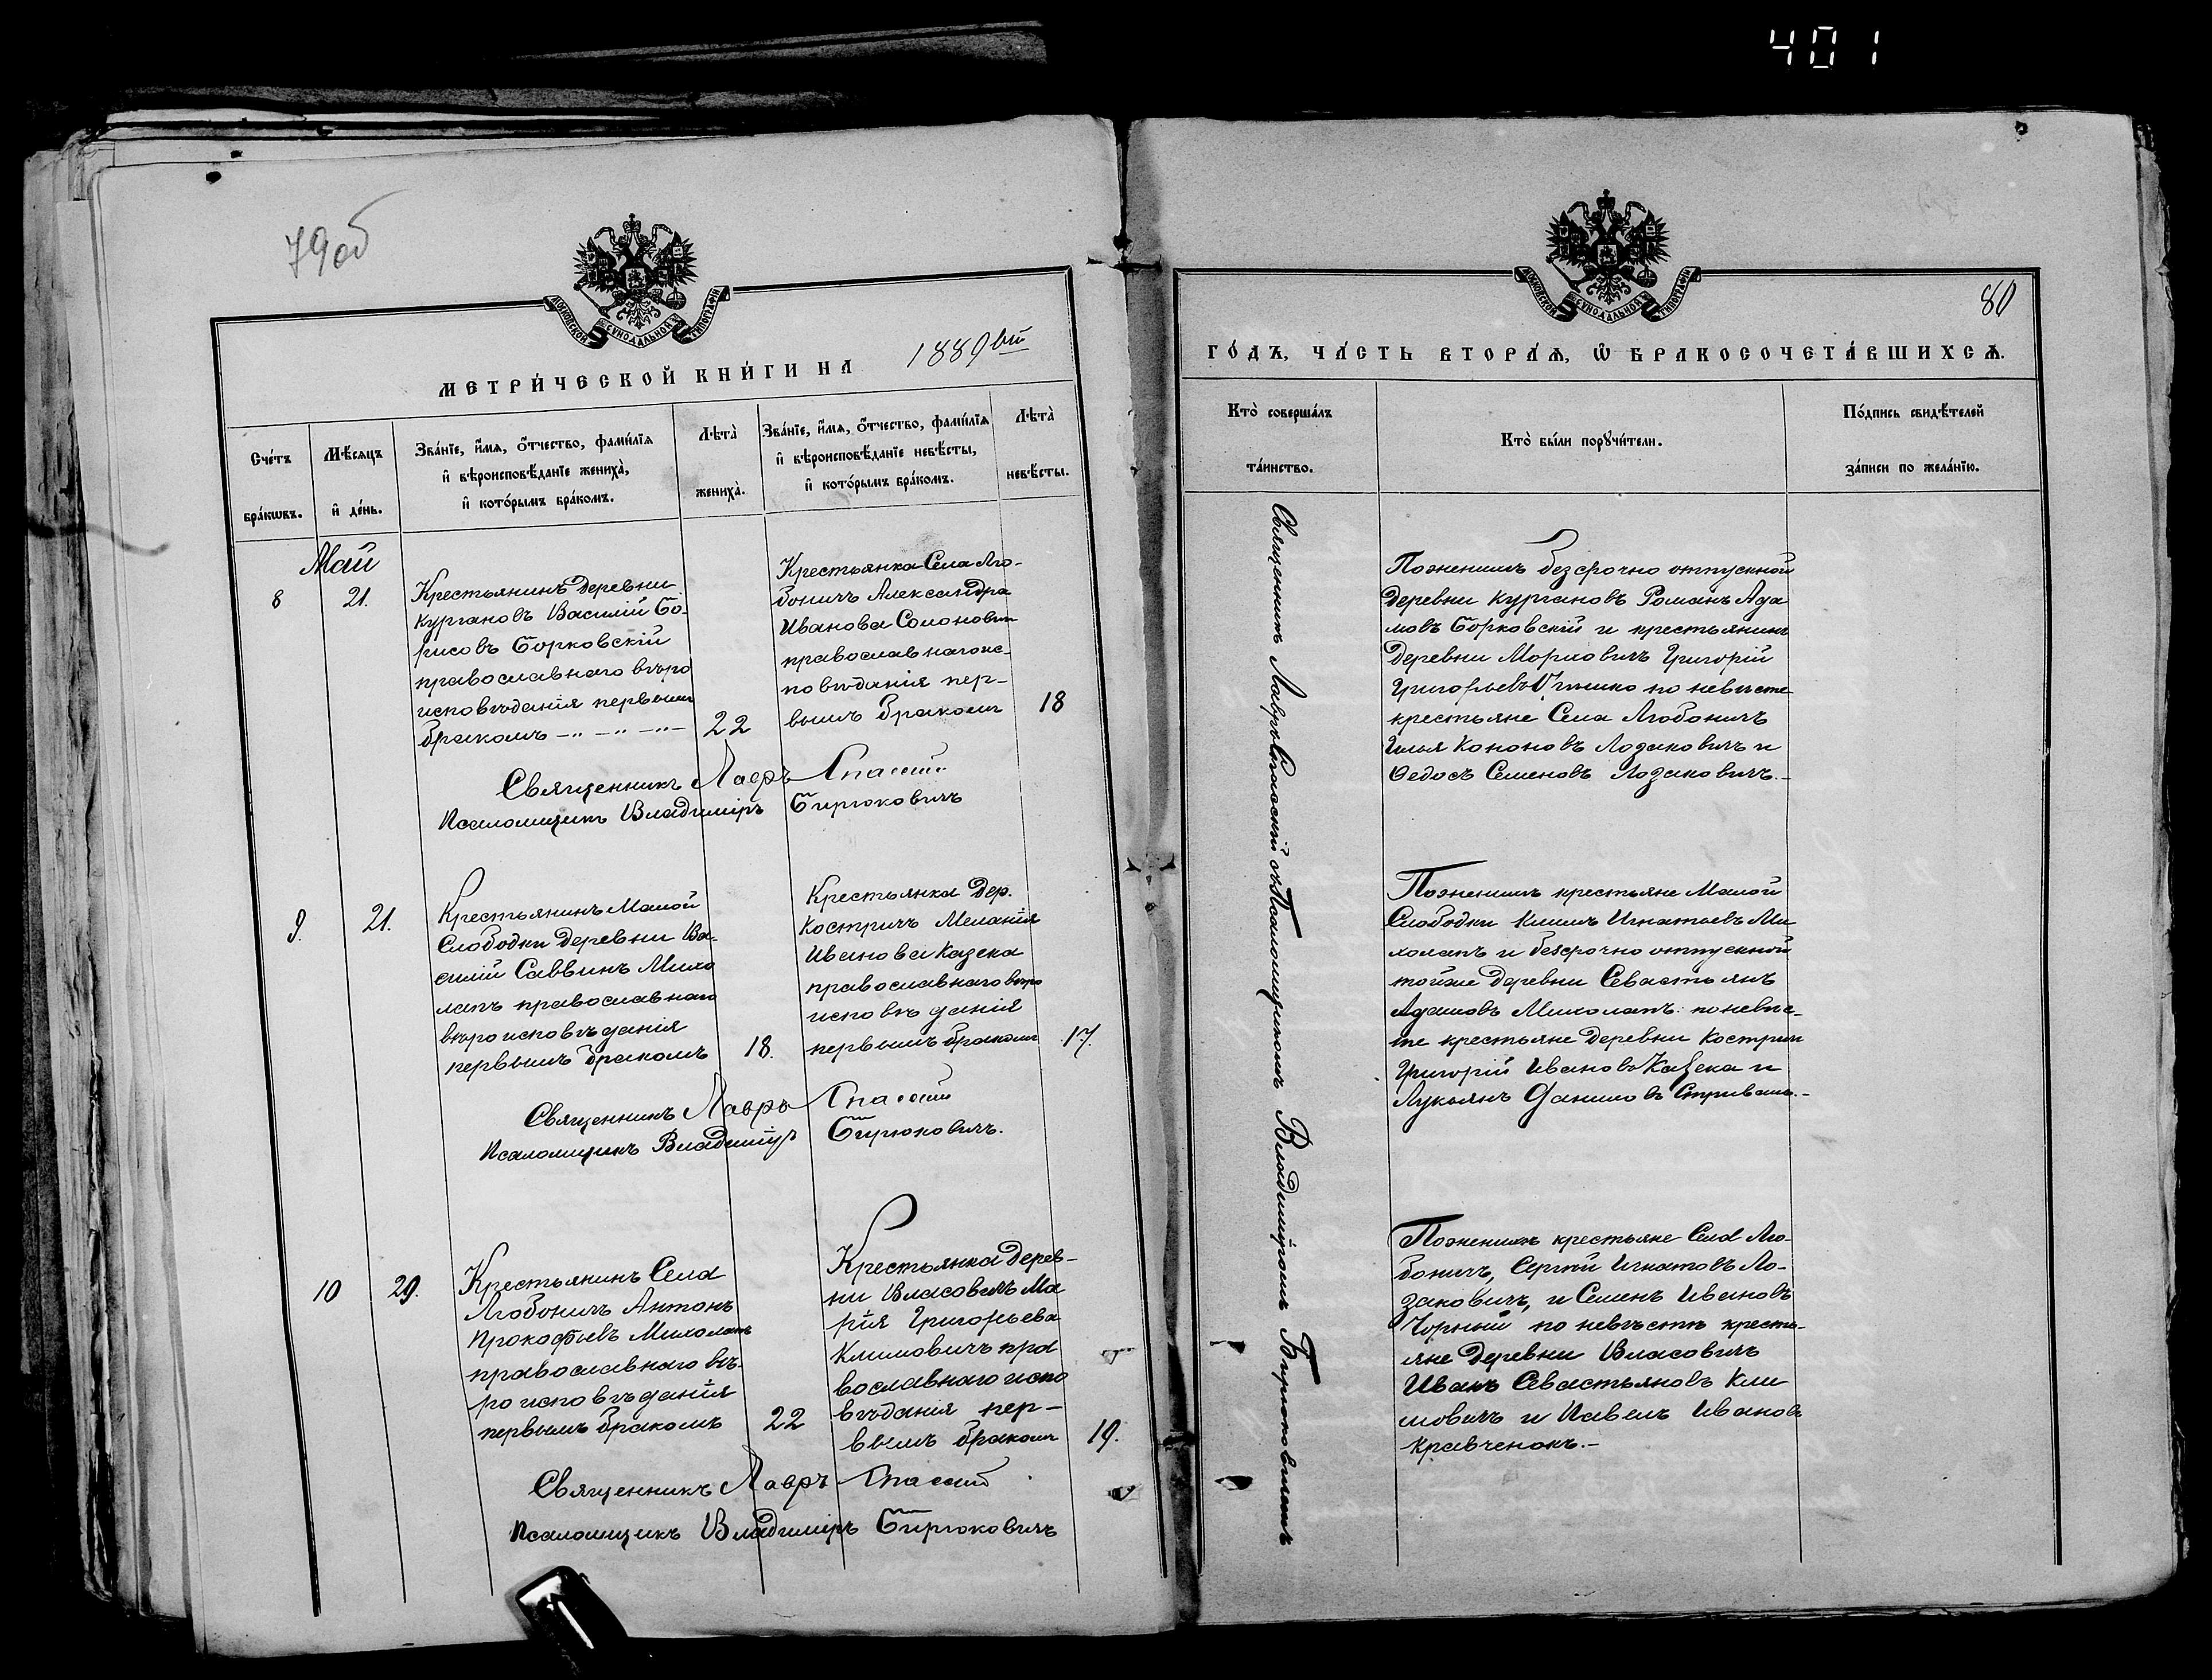 401
79об
МОСКОВСКОЙ СѴНОДАЛЬНОЙ ТИПОГРАФІИ
МЕТРИ́ЧЕСКОЙ КНИ́ГИ НА 1889 вый
Сче́тъ бра́кѡвъ.
Мѣ́сяцъ и де́нь.
Зва́нїе, и́мя, ѻ́тчество, фами́лїя
и вѣроисповѣ́данїе жениха̀,
и кото́рымъ бра́комъ.
Лѣта̀ жениха̀.
Зва́нїе, и́мя, ѻ́тчество, фами́лїя
и вѣроисповѣ́данїе невѣ́сты,
и кото́рымъ бра́комъ.
Лѣта̀ невѣ́сты.
Май
8
21.
Крестьянинъ Деревни
Кургановъ Василій Бо-
рисовъ Борковскій
православнаго вѣро
исповѣданія первымъ
бракомъ —"— —"— —"—
22
Крестьянка Села Лю-
боничъ Александра
Иванова Солонович
православнаго ис-
повѣданія пер-
вымъ бракомъ
18
Священникъ Лавръ Спасскій
Псаломщикъ Владиміръ Бирюковичъ
9.
21.
Крестьянинъ Малой
Слободки Деревни Ва-
силій Саввинъ Михо
лапъ православнаго
вѣроисповѣданія
первымъ бракомъ
18.
Крестьянка Дер.
Костричъ Меланія
Иванова Казека
православнаго вѣро
исповѣданія
первымъ бракомъ
17.
Священникъ Лавръ Спасскій
Псаломщикъ Владиміръ Бирюковичъ.
10
29.
Крестьянинъ Села
Любоничъ Антонъ
Прокофьевъ Михолапъ
православнаго вѣ-
роисповѣданія
первымъ бракомъ
22
Крестьянка Дерев-
ни Власовичъ Ма
рія Григорьева
Климовичъ пра
вославнаго испо
вѣданія пер-
вымъ бракомъ
19.
Священникъ Лавръ Спасскій
Псаломщикъ Владиміръ Бирюковичъ
80
МОСКОВСКОЙ СѴНОДАЛЬНОЙ ТИПОГРАФІИ
ГО́ДЪ, ЧА́СТЬ ВТОРА́Ѧ, Ѡ БРАКОСОЧЕТА́ВШИХСѦ.
Кто̀ соверша́лъ
та́инство.
Кто̀ бы́ли порꙋчи́тели.
По́дпись свидѣ́телей
за́писи по жела́нїю.
Священникъ Лавръ Спасскій съ Псаломщикомъ Владиміромъ Бирюковичемъ
По жениху безсрочно отпускной
Деревни Кургановъ Романъ Ада
мовъ Борковскій и крестьянинъ
Деревни Морховичъ Григорій
Григорьевъ по невѣсте
крестьяне Села Любоничъ
Илья Кононовъ Лозаковичъ и
Ѳедосъ Семеновъ Лозаковичъ.—
По жениху крестьяне Малой
Слободки Климъ Игнатьевъ Ми
холапъ и безсрочно отпускной
тойже Деревни Севастьянъ
Адамовъ Михолапъ: по невѣс-
те крестьяне Деревни Костричъ
Григорій Ивановъ Казека и
Лукьянъ Даниловъ
По жениху крестьяне Села Лю-
боничъ, Сергѣй Игнатовъ Ло-
заковичъ, и Семенъ Ивановъ
Чорный по невѣстѣ кресть-
яне Деревни Власовичъ
Иванъ Севастьяновъ Кли
мовичъ и Павелъ Ивановъ
Кравченокъ.—